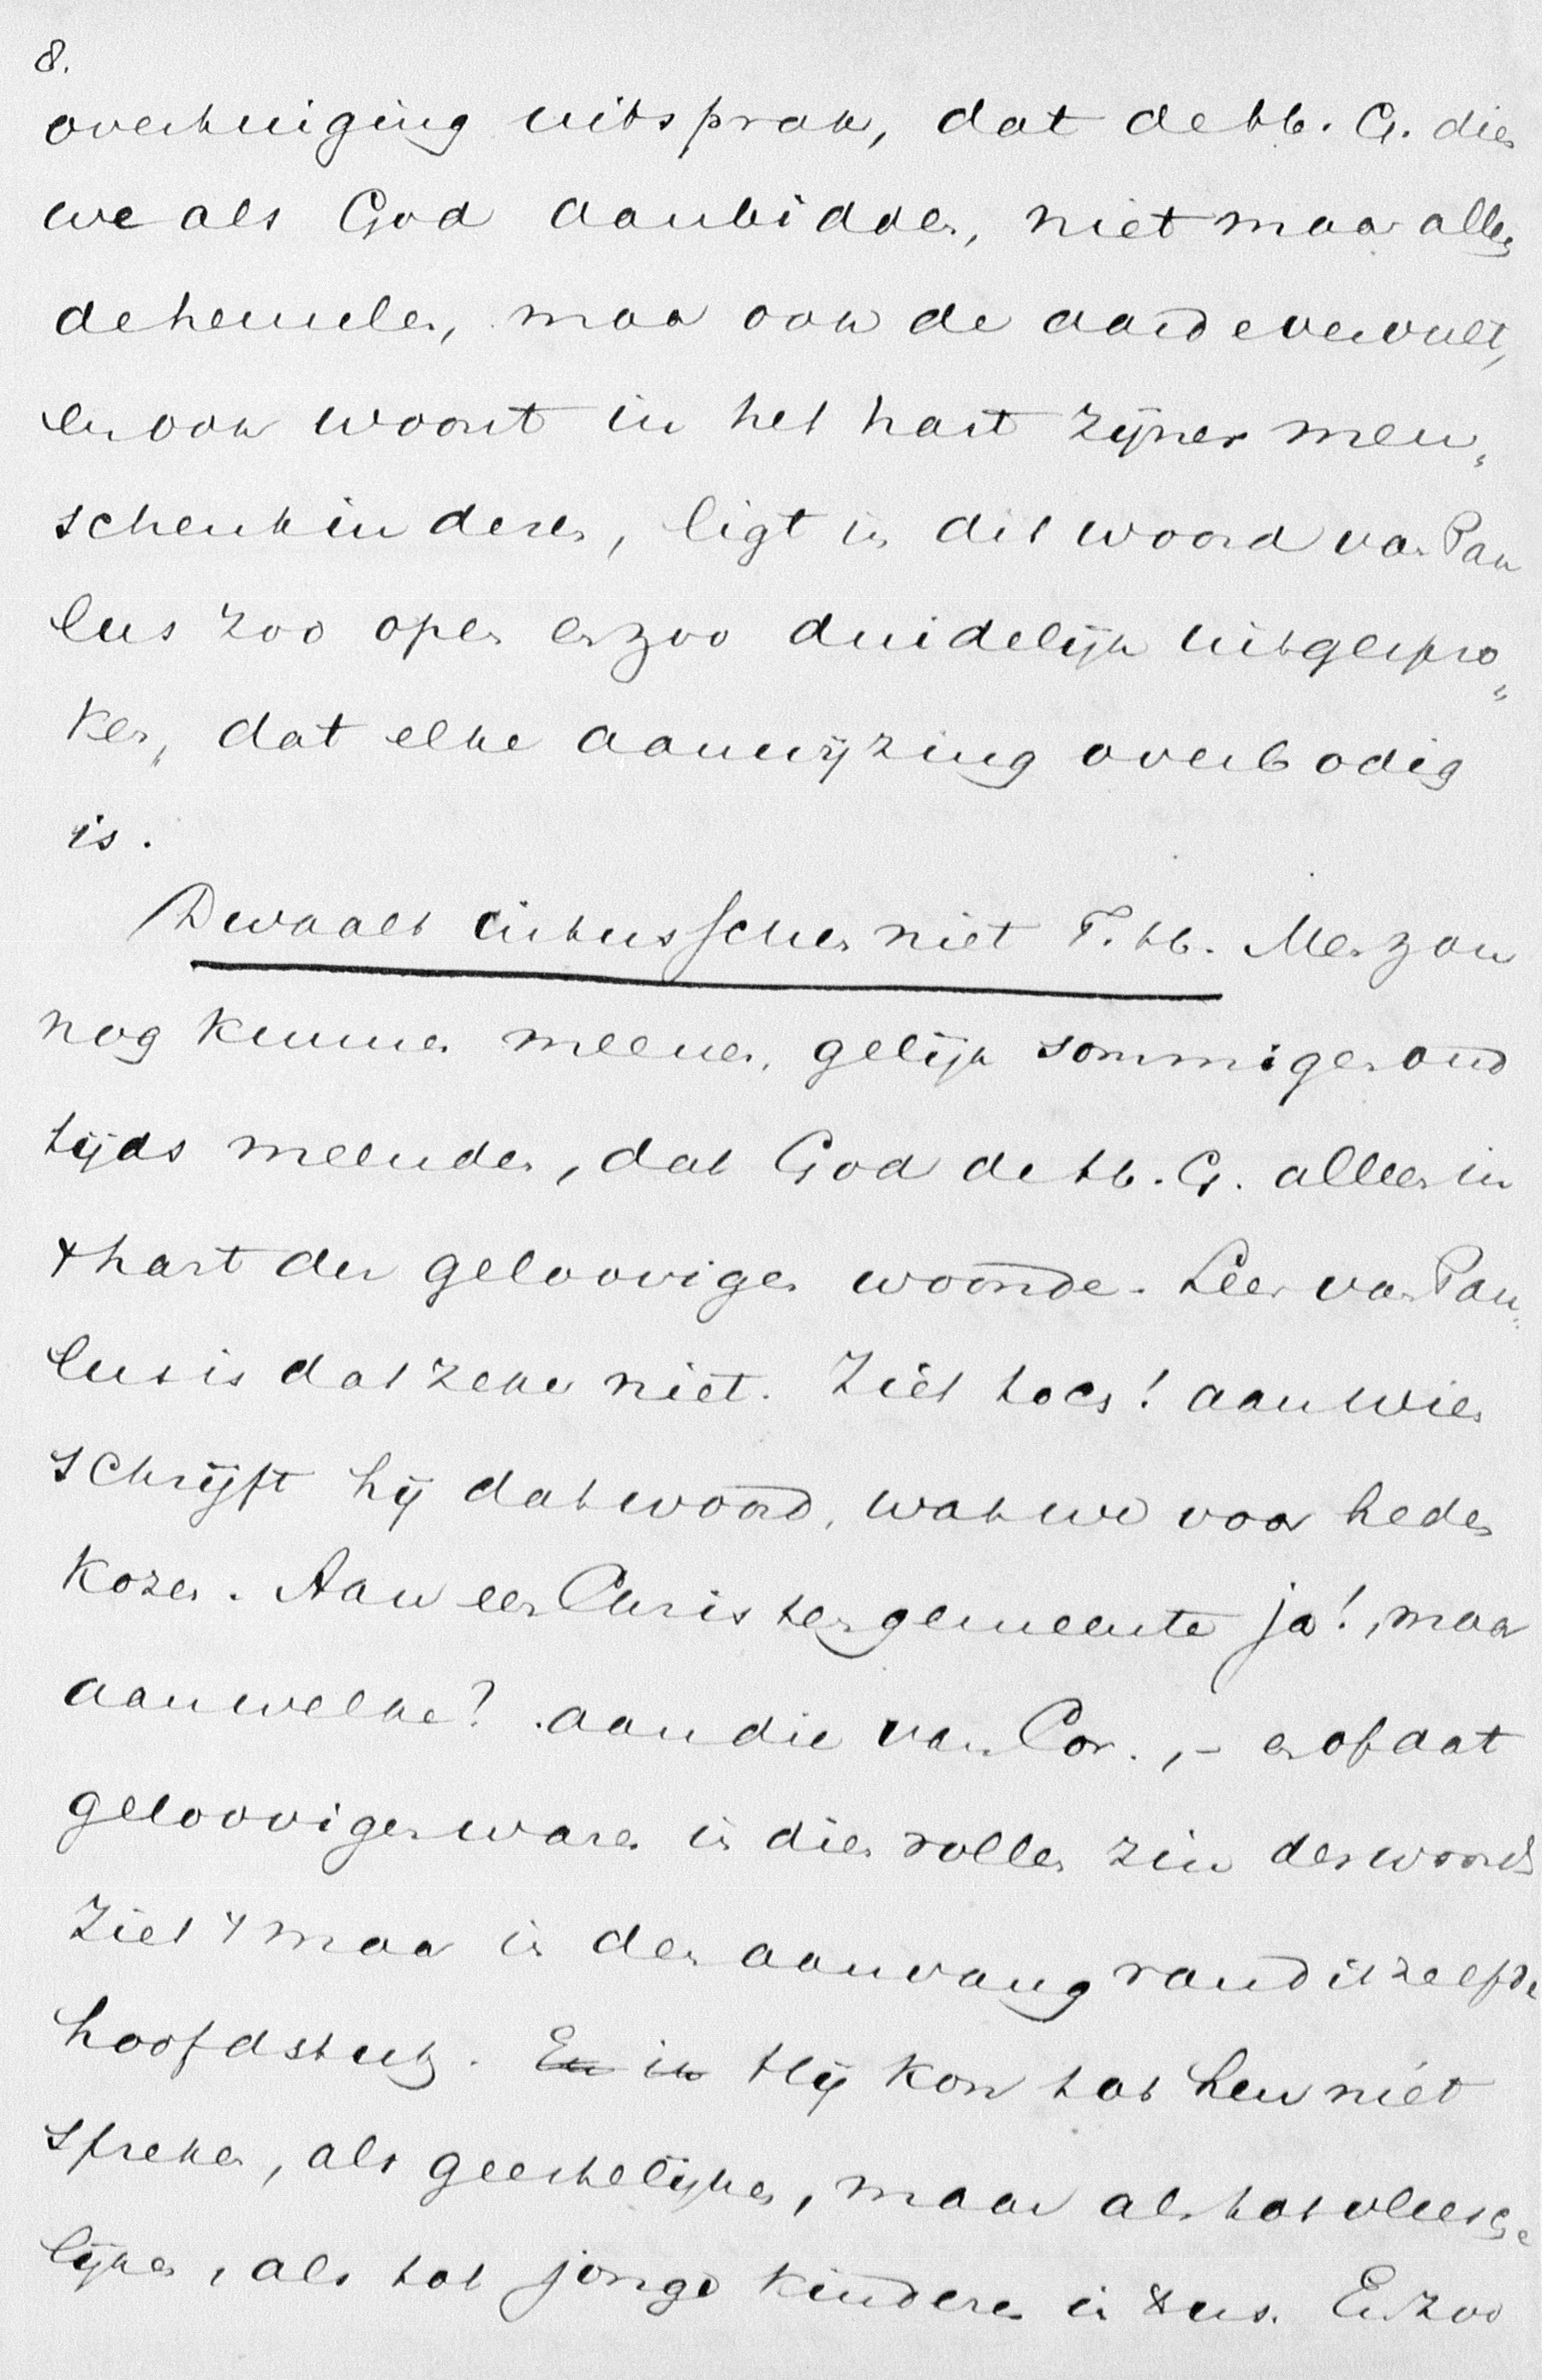 8.
overtuiging uitsprak, dat de H. G. dien
we als God aanbidden, niet maar alleen
de hemelen, maar ook de aarde vervult,
en ook woont in het hart zijner men„
schenkinderen, ligt in dit woord van Pau
lus zoo open en zoo duidelijk uitgespro„
„ken, dat elke aanwijzing overbodig
is.
Dwaalt intusschen niet T. H. Men zou
nog kunnen meenen, gelijk sommigen oud
tijds meenden, dat God de H. G. alleen in
't hart der geloovigen woonde. Leer van Pau„
lus is dat zeker niet. Ziet toch! aan wien
schrijft hij dat woord, wat we voor heden
kozen. Aan een Christengemeente ja!, maar
aan welke? aan die van Cor., – en of dat
geloovigen waren in dien vollen zin des woords
Ziet 't maar in den aanvang van ditzelfde
hoofdstuk. En ik Hij kon tot hen niet
spreken, als geestelijken, maar als tot vleesche
lijken, als tot jonge kinderen in Xus. En zoo